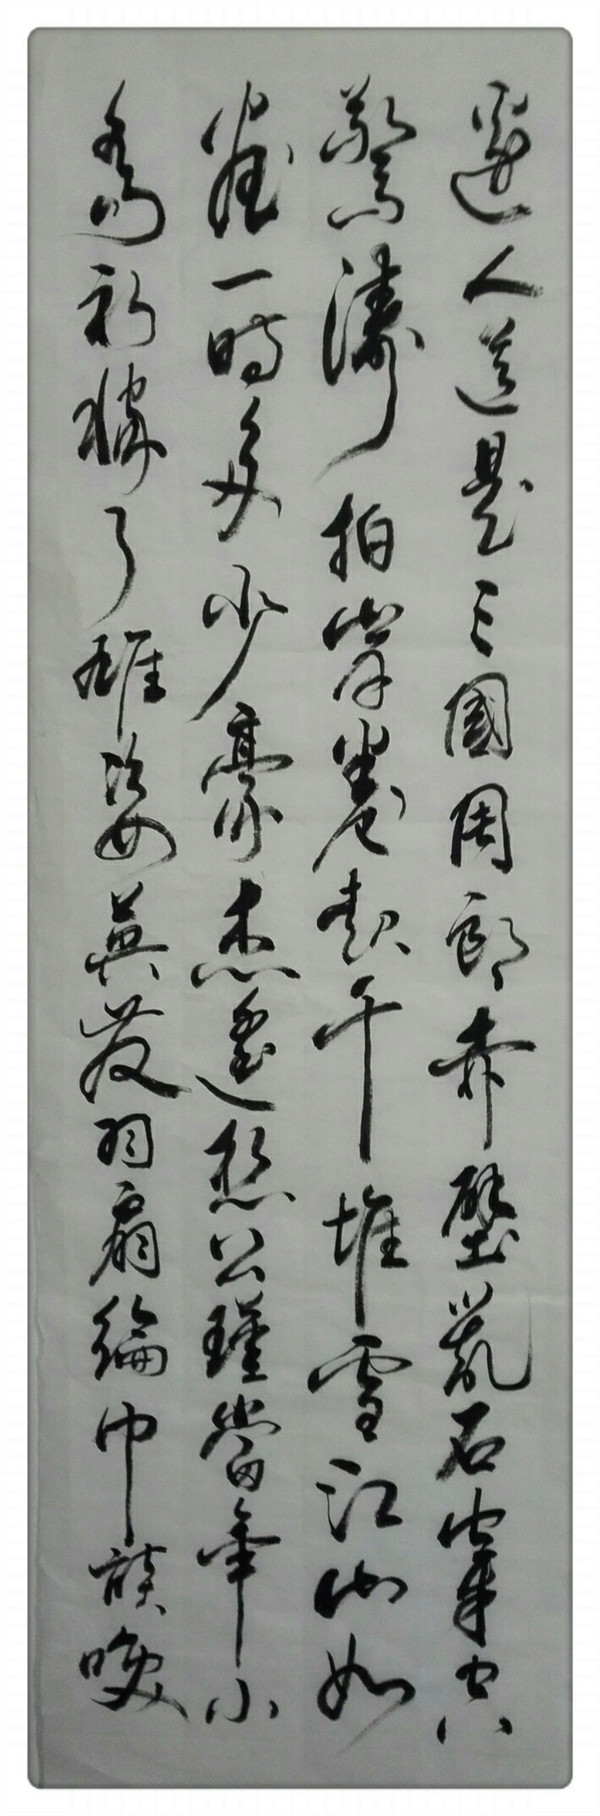 邊人道是三國周郎赤壁亂石穿空
驚濤拍岸卷起千堆雪江山如
畫一時多少豪杰遙想公瑾當年小
喬初嫁了雄姿英發羽扇綸巾談咲